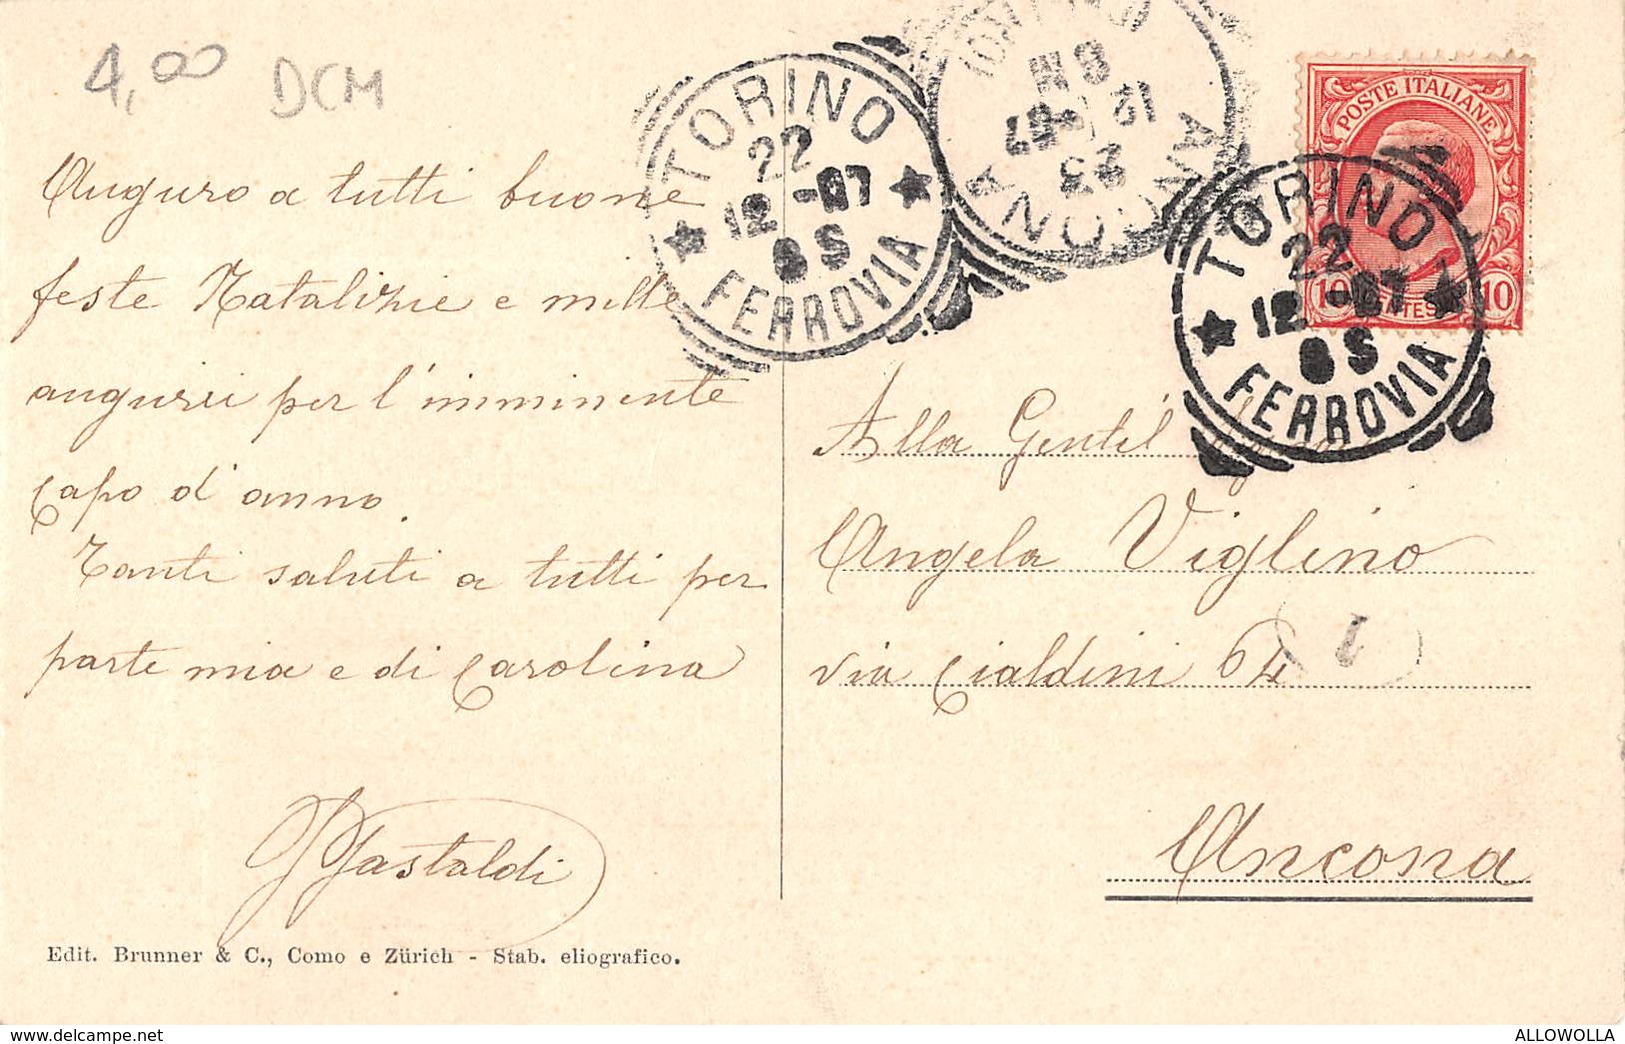 4,00 DCM
Auguro a tutti buone
feste Natalizie e mille
augurii per l'imminente
capo d'anno.
Tanti saluti a tutti per
parte mia e di Carolina
Gastaldi
Edit. Brunner & C., Como e Zürich - Stab. eliografico.
TORINO
22
12 -07
8 S
FERROVIA
ANCONA
23
12 07
8 M
POSTE ITALIANE
10 10
TORINO
22
12 -07
8 S
FERROVIA
Alla Gentil
Angela Viglino
via Cialdini 64
1
Ancona
http://www.delcampe.net
ALLOWOLLA